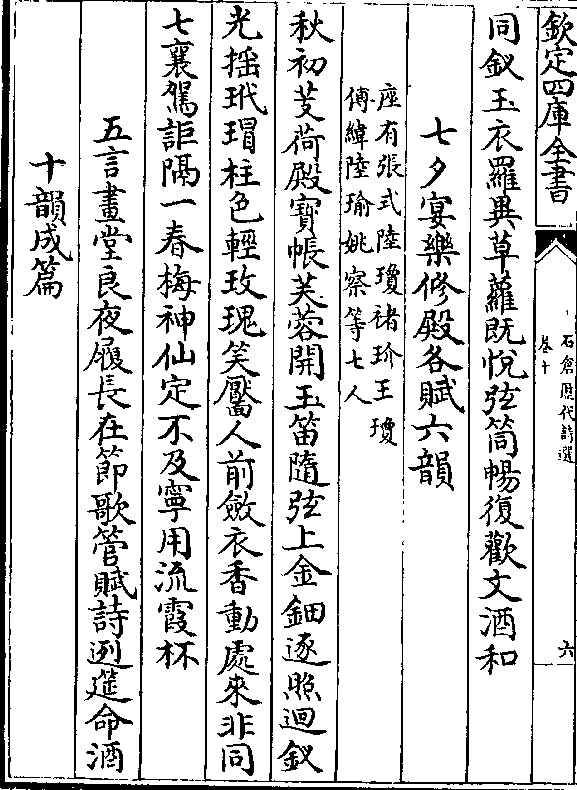 欽定四庫全書
石倉歷代詩選
卷十
六
同釵玉衣羅異草蘿既悅弦筒暢復歡文酒和
七夕宴樂修殿各賦六韻
座有張式陸瓊褚玠王瓊
傅縡陸瑜姚察等七人
秋初芰荷殿寶帳芙蓉開玉笛隨弦上金鈿逐照迴釵
光揺玳瑁柱色輕玫瑰笑靨人前斂衣香動處來非同
七襄駕詎隔一春梅神仙定不及寧用流霞杯
五言畫堂良夜履長在節歌管賦詩迾筵命酒
十韻成篇